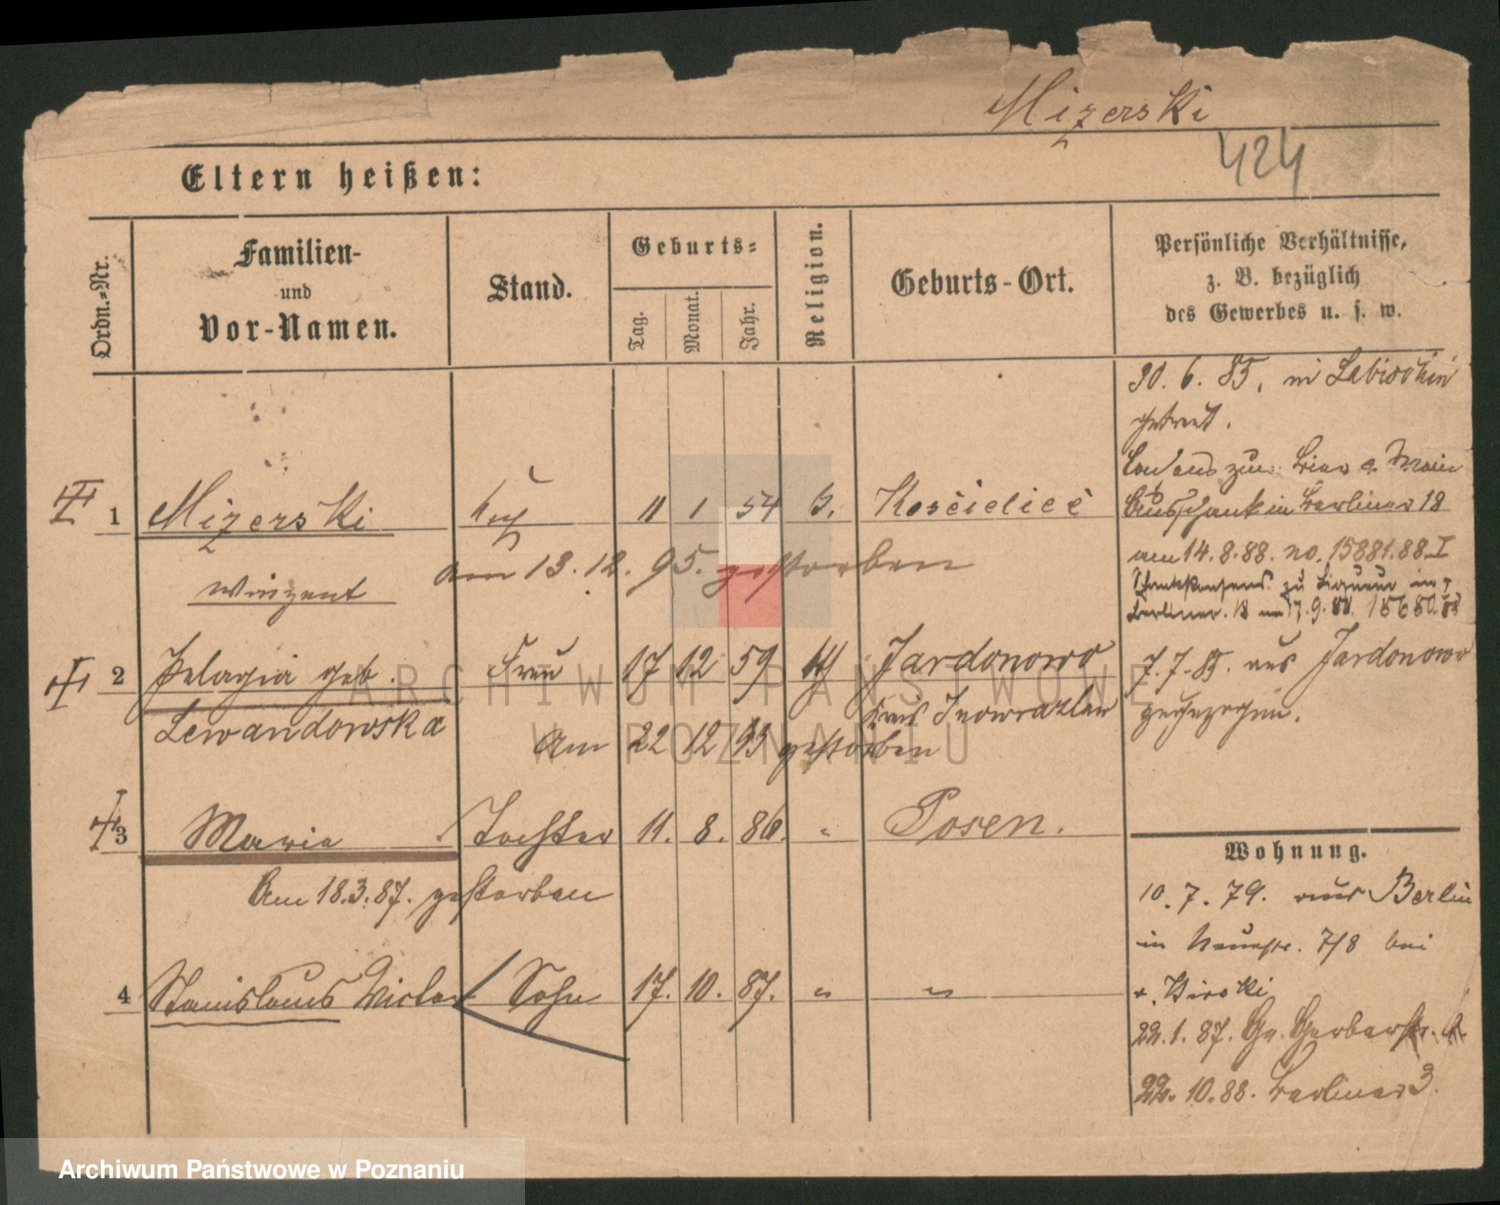 Mizerski
424
Eltern heißen:
Ordn.-Nr.
Familien-
und
Vor-Namen.
Stand.
Geburts-
Tag.
Monat.
Jahr.
Religion.
Geburts-Ort.
Persönliche Verhältnisse,
z. B. bezüglich
des Gewerbes u. s. w.
30. 6. 85. in Labischin
getraut.
1 Mizerski 11 1 54 Kościelice
am 13. 12. 95. gestorben
Winzent
Ausschank in Berliner 18
am 14. 8. 88. no. 15881.88. I
Berliner. 18 17. 9. 88.
2 Pelagia geb. Frau 17 12 59 Jardonowo
Lewandowska Kreis Inowrazlaw
Am 22 12 93 gestorben
7. 7. 85. aus Jardonowo
zugezogen.
3 Maria Tochter 11. 8. 86. " Posen.
Am 18. 3. 87. gestorben
4 Stanislaus Victor Sohn 17. 10. 87. " "
Wohnung.
10. 7. 79. aus Berlin
in Neuestr. 7/8 bei
22. 1. 87. Gr. Gerberstr.
22. 10. 88. Berliner 3.
ARCHIWUM PAŃSTWOWE
W POZNANIU
Archiwum Państwowe w Poznaniu